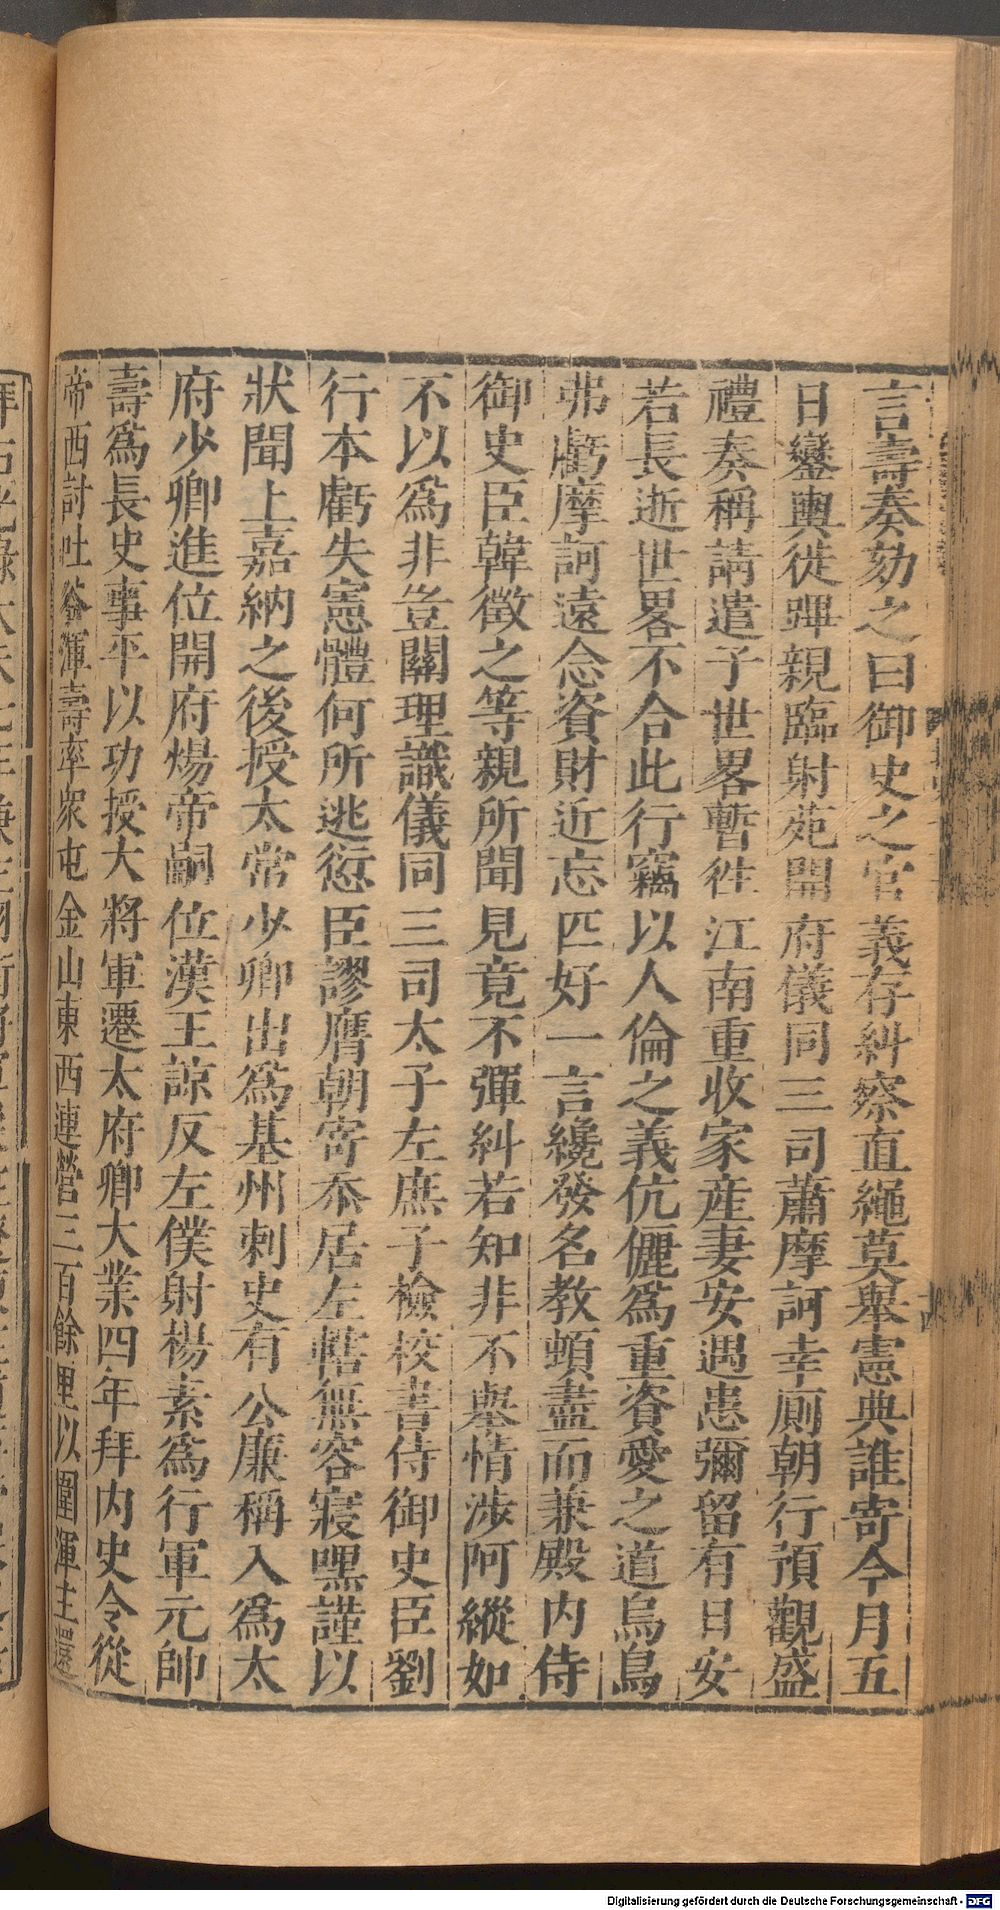 言壽奏劾之曰御史之官義存糾察直繩莫舉憲典誰寄今月五
日鑾輿徙蹕親臨射苑開府儀同三司蕭摩訶幸厠朝行預觀盛
禮奏稱請遣子世畧暫徃江南重收家産妻安遇患彌留有日安
若長逝世畧不合此行竊以人倫之義伉儷爲重資愛之道烏鳥
弗虧摩訶遠念資財近忘匹好一言纔發名教頓盡而兼殿内侍
御史臣韓徵之等親所聞見竟不彈糾若知非不舉情涉阿縱如
不以爲非豈關理識儀同三司太子左庶子檢校書侍御史臣劉
行本虧失憲體何所逃愆臣謬膺朝寄忝居左轄無容寢嘿謹以
狀聞上嘉納之後授太常少卿出爲基州刺史有公廉稱入爲太
府少卿進位開府煬帝嗣位漢王諒反左僕射楊素爲行軍元帥
壽爲長史事平以功授大將軍遷太府卿大業四年拜内史令從
帝西討吐谷渾壽率衆屯金山東西連營三百餘里以圍渾主還
Digitalisierung gefördert durch die Deutsche Forschungsgemeinschaft - DFG